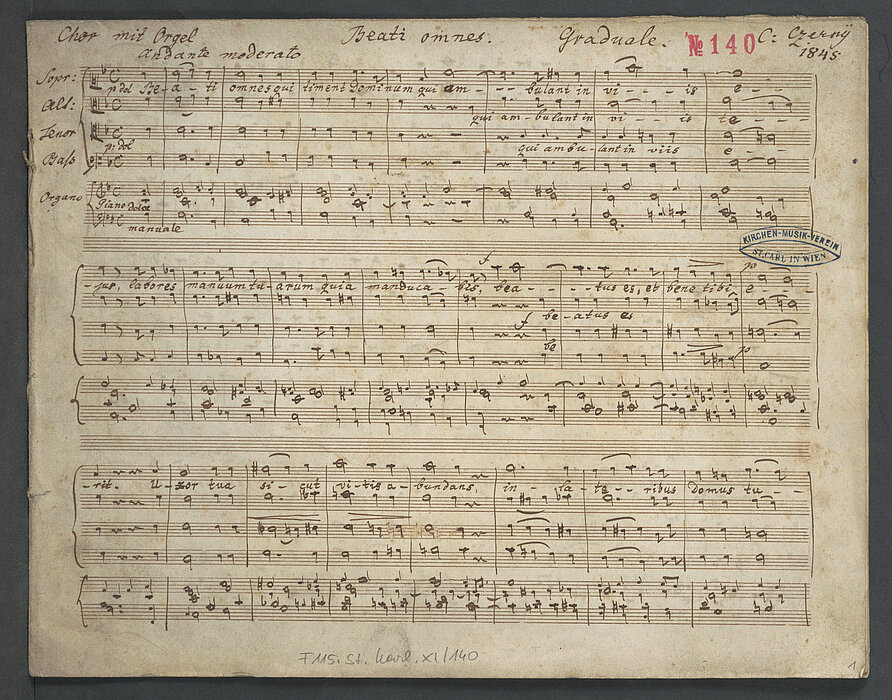 Chor mit Orgel Beati omnes. Graduale. № 140 C: Czerny
Andante moderato 1845
Sopr:
p dol Be - a - ti omnes qui timent Dominum qui am - - bulant in vi - - is e - -
Alt:
qui am - bulant in vi - - is e - -
Tenor
p: dol
qui ambu - lant in viis
Baſs
Organo
piano dolce
manuale
KIRCHEN-MUSIK-VEREIN
ST. CARL IN WIEN.
f po
- jus, labores manuum tu - arum quia manduca - bis, bea - - - tus es, et bene tibi e - -
be - atus es
f
be
- rit. Uxor tua si - cut vi - tis a - bundans, in la - te - - ribus domus tu - -
F 115. St. Karl. XI/140
1